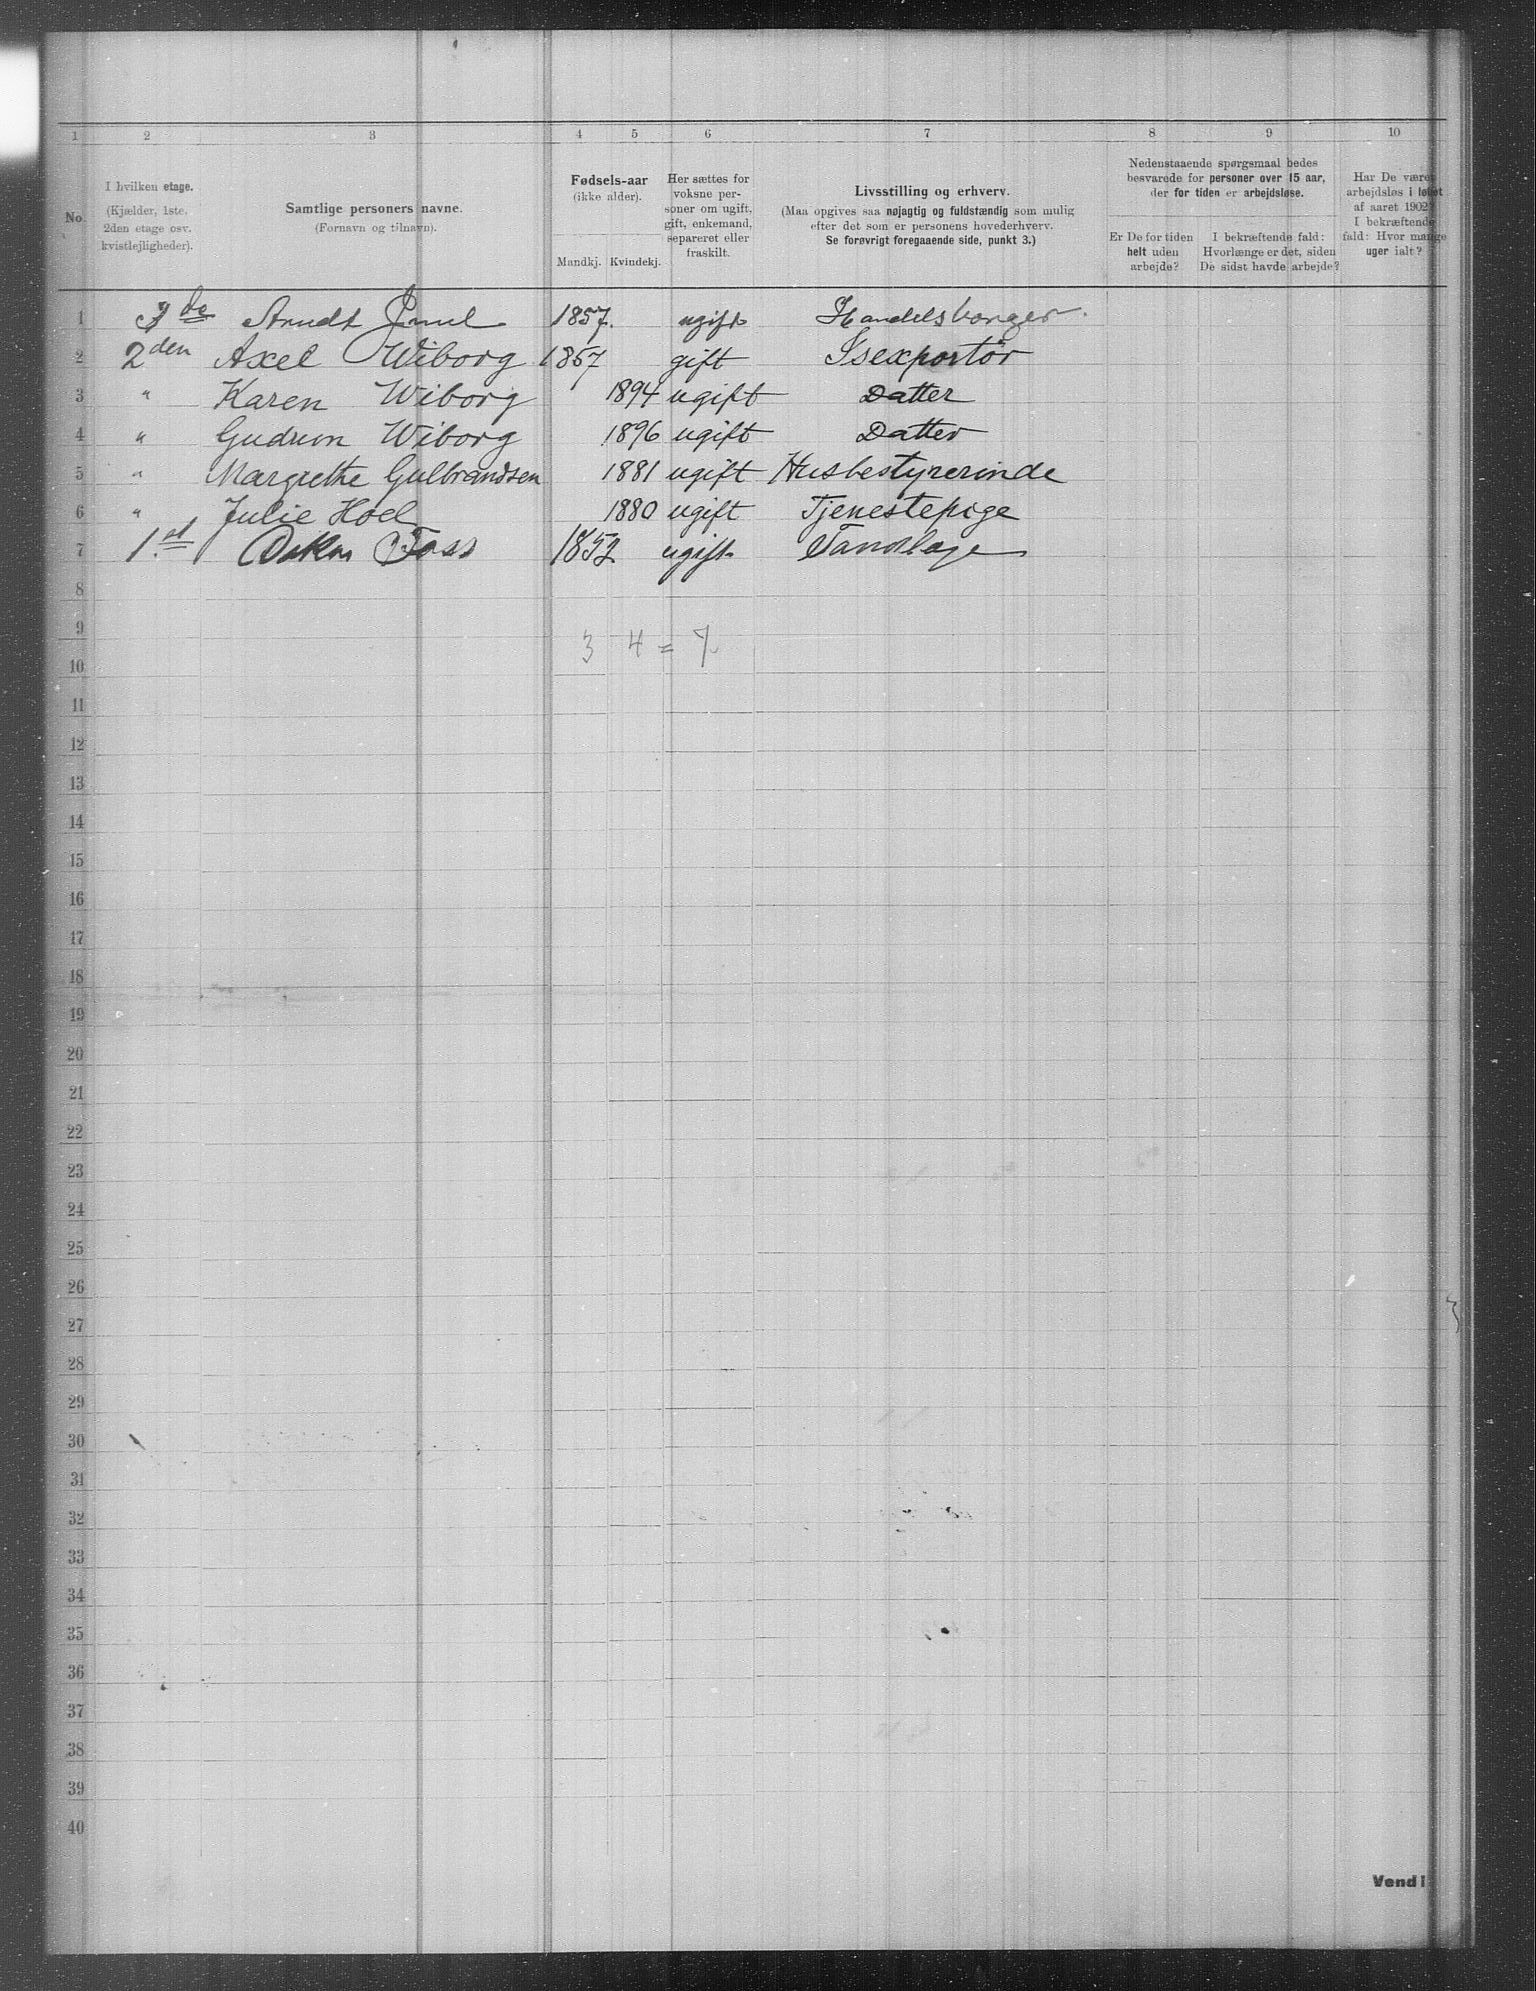 1 2 3 4 5 6 7 8 9 10
No.
I hvilken etage.
(Kjælder, 1ste.
2den etage osv.
kvistlejligheder).
Samtlige personers navne.
(Fornavn og tilnavn).
Fødsels-aar
(ikke alder).
Mandkj. Kvindekj.
Her sættes for
voksne per-
soner om ugift,
gift, enkemand,
separeret eller
fraskilt.
Livsstilling og erhverv.
(Maa opgives saa nøjagtig og fuldstændig som mulig
efter det som er personens hovederhverv.
Se forøvrigt foregaaende side, punkt 3.)
Nedenstaaende spørgsmaal bedes
besvarede for personer over 15 aar,
der for tiden er arbejdsløse.
Er De for tiden
helt uden
arbejde?
I bekræftende fald:
Hvorlænge er det, siden
De sidst havde arbejde?
Har De været
arbejdsløs i løbet
af aaret 1902?
I bekræftende
fald: Hvor mange
uger ialt?
1 3de Arndt 1857. ugift Handelsborger.
2 2den Axel Wiborg 1867 gift Isexportör
3 " Karen Wiborg 1894 ugift Datter
4 " Gudrun Wiborg 1896 ugift Datter
5 " Margrethe Gulbrandsen 1881 ugift Husbestyrerinde
6 " Julie Hoel 1880 ugift Tjenestepige
7 1.st Foss 1852 ugift Tandlæge
8
9
3 4 = 7
10
11
12
13
14
15
16
17
18
19
20
21
22
23
24
25
26
27
28
29
30
31
32
33
34
35
36
37
38
39
40
Vend!